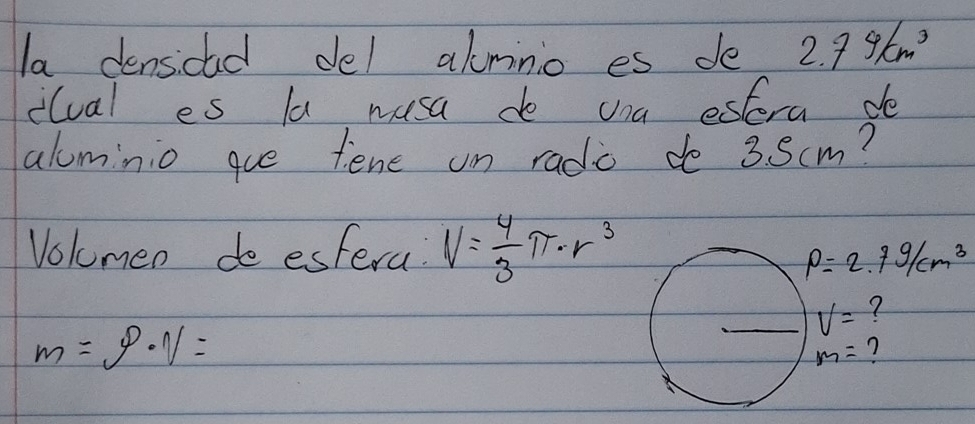 la densidad del aluminio es de 2.7 g/cm³
¿Cual es la masa de una esfera de
aluminio que tiene un radio de 3.5cm?
Volumen de esfera: V = 4/3 π · r³
ρ = 2.7 g/cm³
V = ?
m = ρ · V =
m = ?